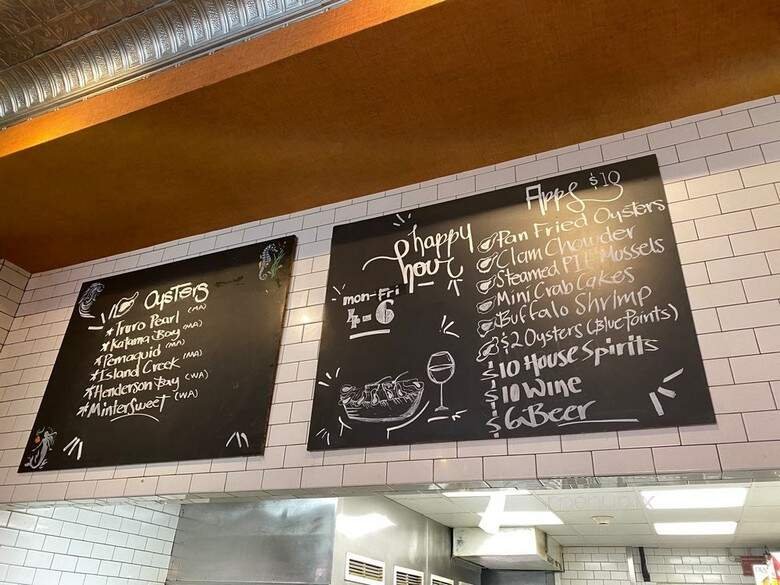 Oysters
*Truro Pearl (MA)
*Katama Bay (MA)
*Pemaquid (MA)
*Island Creek (MA)
*Henderson Bay (WA)
*MinterSweet (WA)
happy
hour
mon-Fri
4-6
Apps $10
Pan Fried Oysters
Clam Chowder
Steamed PEI Mussels
Mini Crab Cakes
Buffalo Shrimp
$2 Oysters (BluePoints)
$10 House Spirits
$10 Wine
$6 Beer